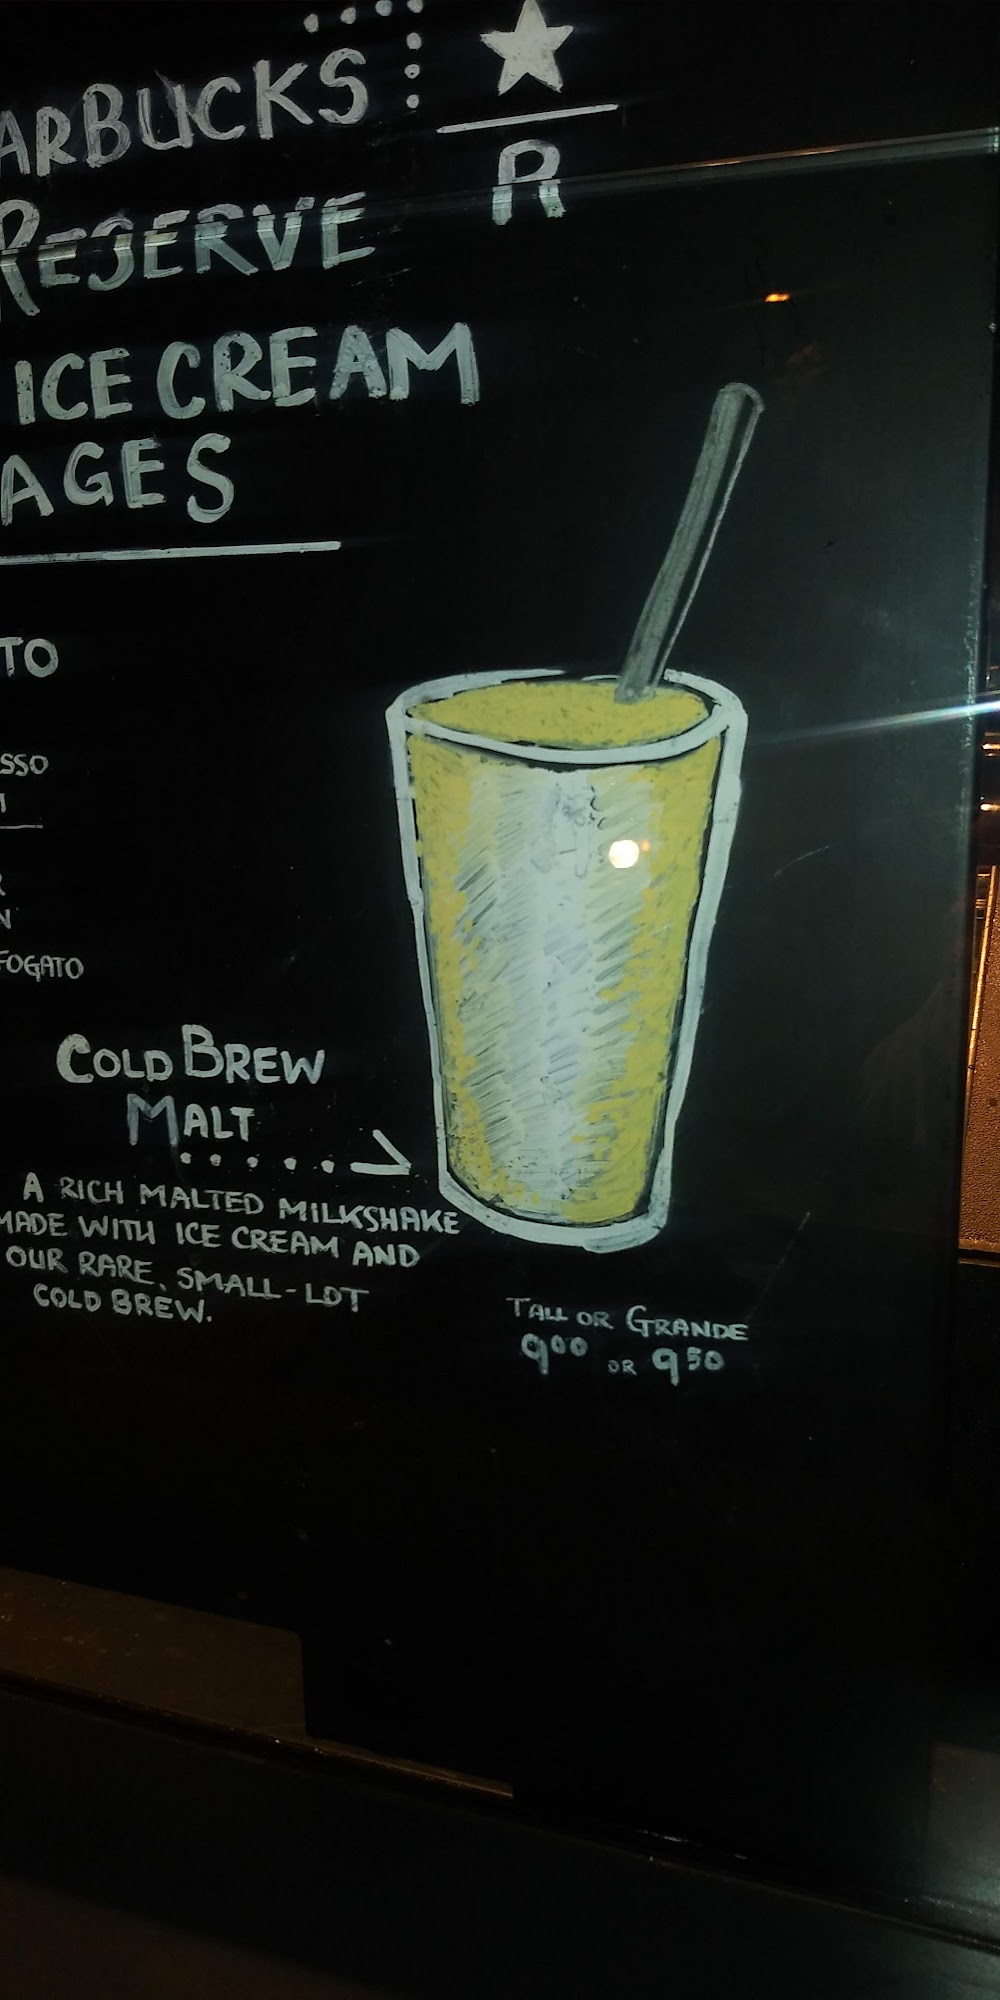 ARBUCKS
RESERVE
R
ICE CREAM
AGES
TO
SSO
FOGATO
COLD BREW
MALT
A RICH MALTED MILKSHAKE
MADE WITH ICE CREAM AND
OUR RARE, SMALL-LOT
COLD BREW.
TALL OR GRANDE
900 OR 950